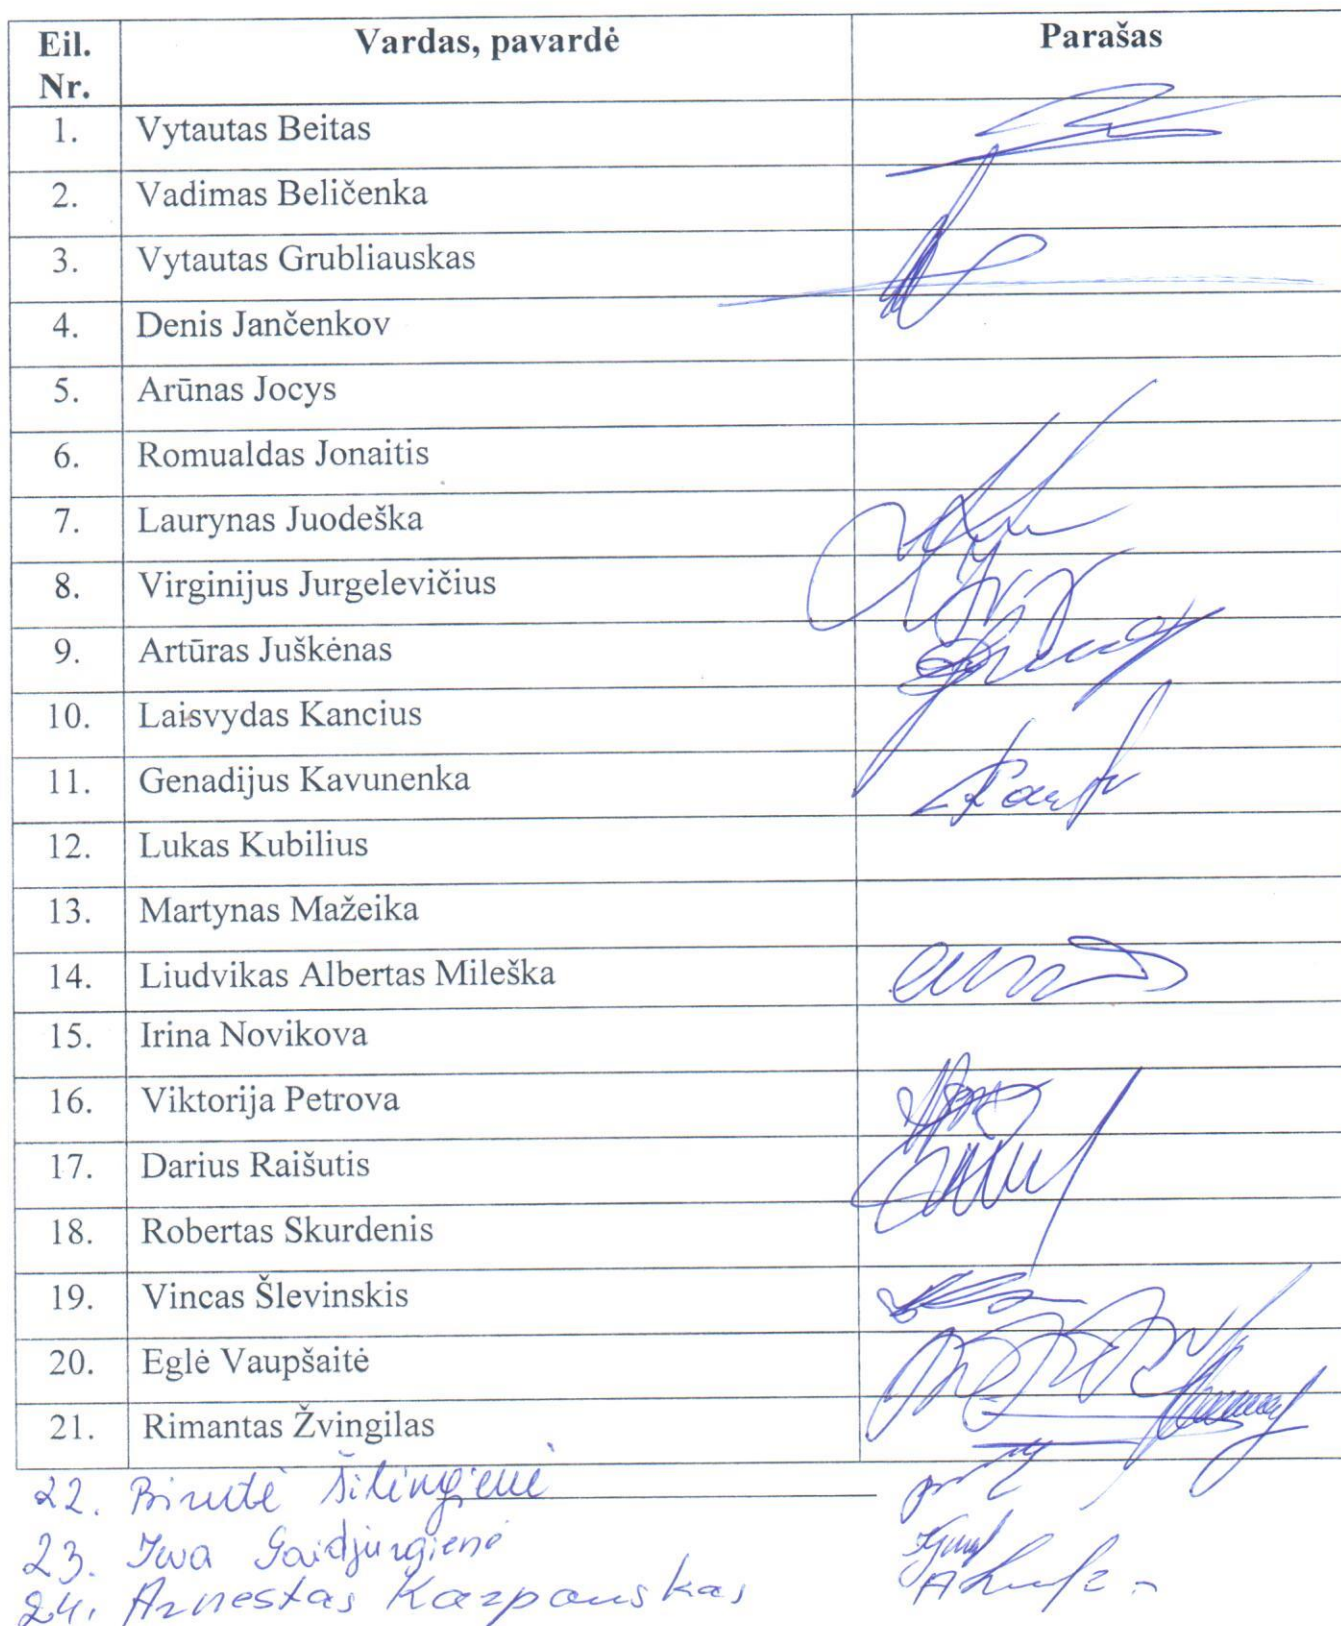 Eil. Nr. Vardas, pavardė Parašas
1. Vytautas Beitas
2. Vadimas Beličenka
3. Vytautas Grubliauskas
4. Denis Jančenkov
5. Arūnas Jocys
6. Romualdas Jonaitis
7. Laurynas Juodeška
8. Virginijus Jurgelevičius
9. Artūras Juškėnas
10. Laisvydas Kancius
11. Genadijus Kavunenka
12. Lukas Kubilius
13. Martynas Mažeika
14. Liudvikas Albertas Mileška
15. Irina Novikova
16. Viktorija Petrova
17. Darius Raišutis
18. Robertas Skurdenis
19. Vincas Šlevinskis
20. Eglė Vaupšaitė
21. Rimantas Žvingilas
22. Birutė Šilingienė
23. Gaidjurgienė
24. Arnestas